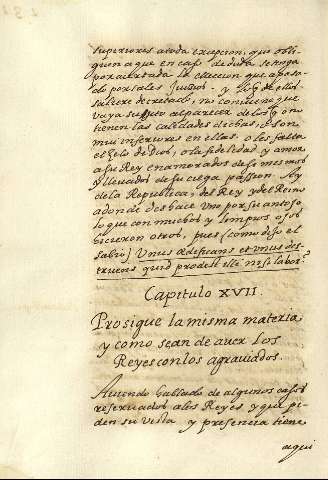 superiores a toda excepcion, que obli-
guen a que en caso de duda se tenga
por acertada la eleccion que a pasa-
do por tales Juicios. y de ellos
saliere decretado, no conviene que
vaya sugeto al parecer de los q̃ no
tienen las calidades dichas, o son
mui inferiores en ellas. o les falta
el zelo de Dios, o la fidelidad y amor
a su Rey enamorados de si mismos
y llevados de su ciega passion. Ay
de la Republica, del Rey y del Reino
adonde deshace uno por su antojo
lo que con muchos y limpios ojos
hicieron otros, pues (como dijo el
sabio) Unus ædificans et unus des-
truens quid prodest illi nisi labor?
Capitulo XVII.
Prosigue la misma materia,
y como sean de aver los
Reyes con los agraviados.
Aviendo hablado de algunos casos
reservados a los Reyes y que pi-
den su vista y presencia tiene
aqui